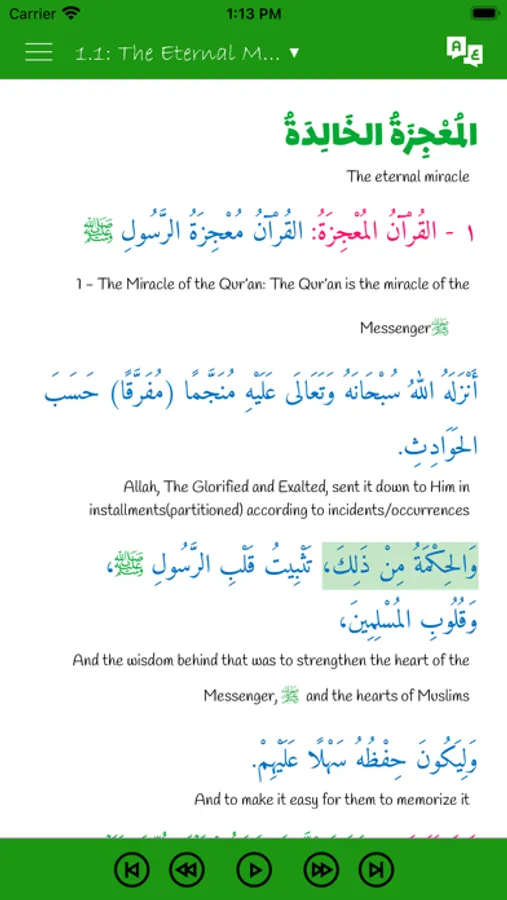 Carrier 1:13 PM
1.1: The Eternal M... ▼
المُعْجِزَةُ الخَالِدَةُ
The eternal miracle
١ - القُرْآنُ المُعْجِزَةُ: القُرْآنُ مُعْجِزَةُ الرَّسُولِ ﷺ
1 - The Miracle of the Qur'an: The Qur'an is the miracle of the
Messenger ﷺ
أَنْزَلَهُ اللهُ سُبْحَانَهُ وَتَعَالَى عَلَيْهِ مُنَجَّمًا (مُفَرَّقًا) حَسَبَ
الحَوَادِثِ.
Allah, The Glorified and Exalted, sent it down to Him in
installments(partitioned) according to incidents/occurrences
وَالحِكْمَةُ مِنْ ذَلِكَ، تَثْبِيتُ قَلْبِ الرَّسُولِ ﷺ،
وَقُلُوبِ المُسْلِمِينَ،
And the wisdom behind that was to strengthen the heart of the
Messenger, ﷺ and the hearts of Muslims
وَلِيَكُونَ حِفْظُهُ سَهْلًا عَلَيْهِمْ.
And to make it easy for them to memorize it